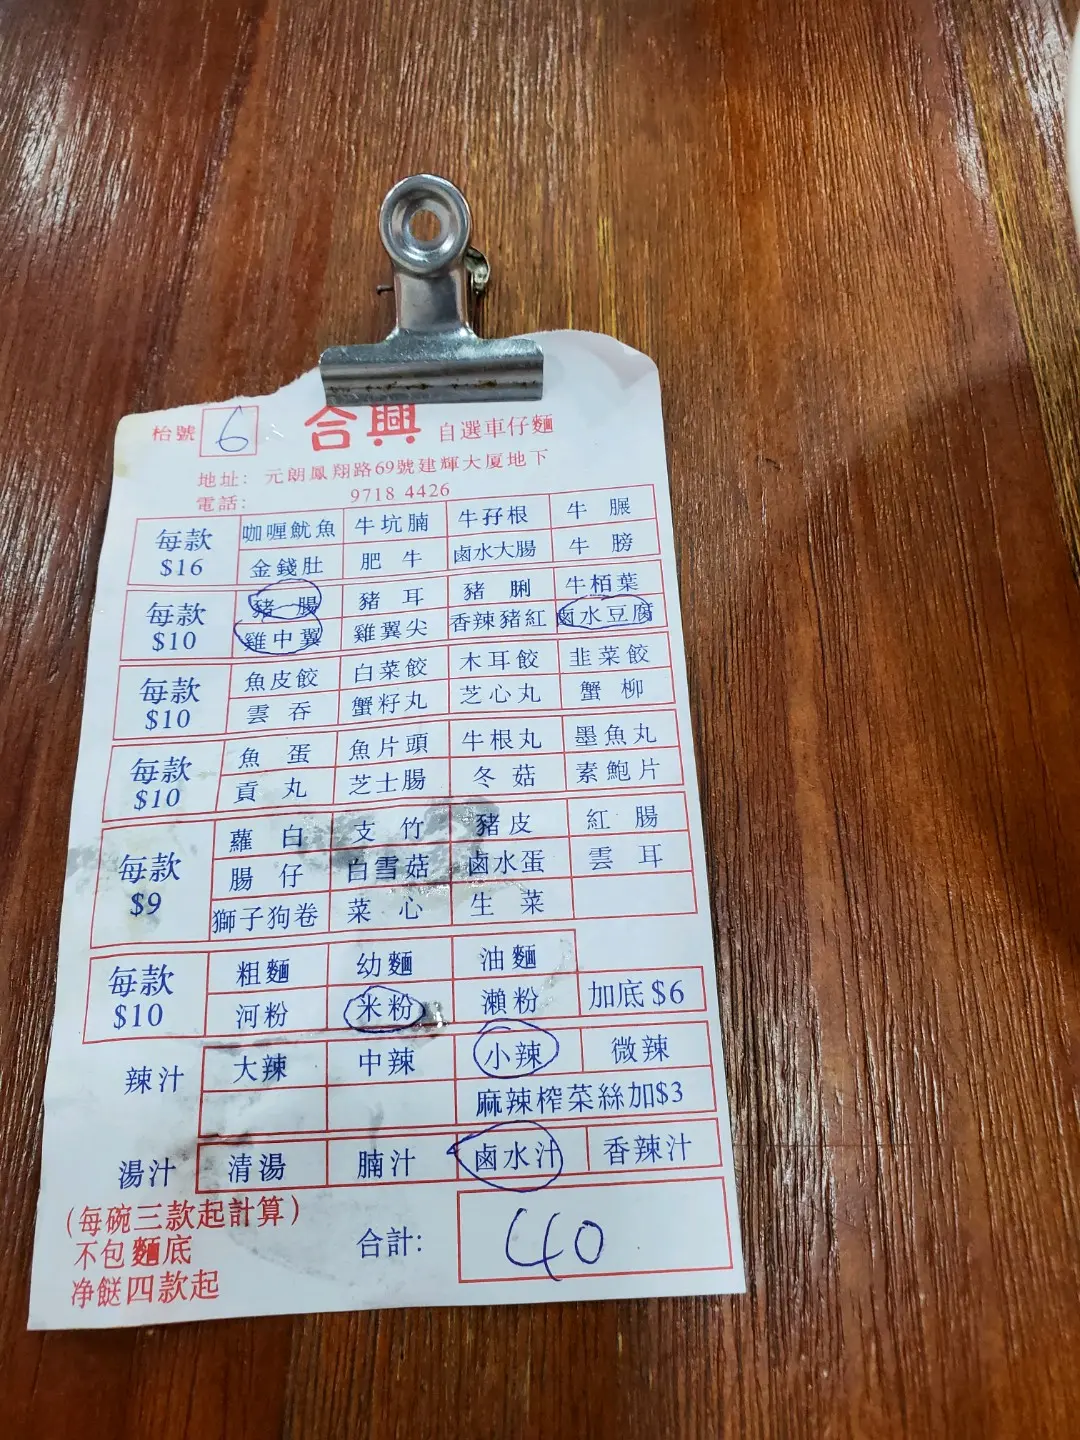 枱號 6 合興 自選車仔麵
地址: 元朗鳳翔路69號建輝大厦地下
電話: 9718 4426
每款 $16 咖喱魷魚 牛坑腩 牛孖根 牛𦟌
金錢肚 肥牛 鹵水大腸 牛膀
每款 $10 豬腸 豬耳 豬脷 牛栢葉
雞中翼 雞翼尖 香辣豬紅 鹵水豆腐
每款 $10 魚皮餃 白菜餃 木耳餃 韭菜餃
雲吞 蟹籽丸 芝心丸 蟹柳
每款 $10 魚蛋 魚片頭 牛根丸 墨魚丸
貢丸 芝士腸 冬菇 素鮑片
每款 $9 蘿白 支竹 豬皮 紅腸
腸仔 白雪菇 鹵水蛋 雲耳
獅子狗卷 菜心 生菜
每款 $10 粗麵 幼麵 油麵
河粉 米粉 瀨粉 加底 $6
辣汁 大辣 中辣 小辣 微辣
麻辣榨菜絲加$3
湯汁 清湯 腩汁 鹵水汁 香辣汁
(每碗三款起計算)
不包麵底 合計: 40
净餸四款起